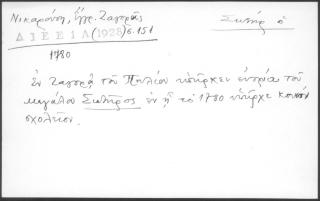 Νικαρούση, Ἔγγρ. Ζαγορᾶς
Σωτὴρ ὁ
ΔΙΕΕΙΛ (1928) 6.151
1780
Ἐν Ζαγορᾷ τοῦ Πηλίου ὑπῆρχεν ἐνορία τοῦ
μεγάλου Σωτῆρος ἐν ᾗ τὸ 1780 ὑπῆρχε κοινὸν
σχολεῖον.